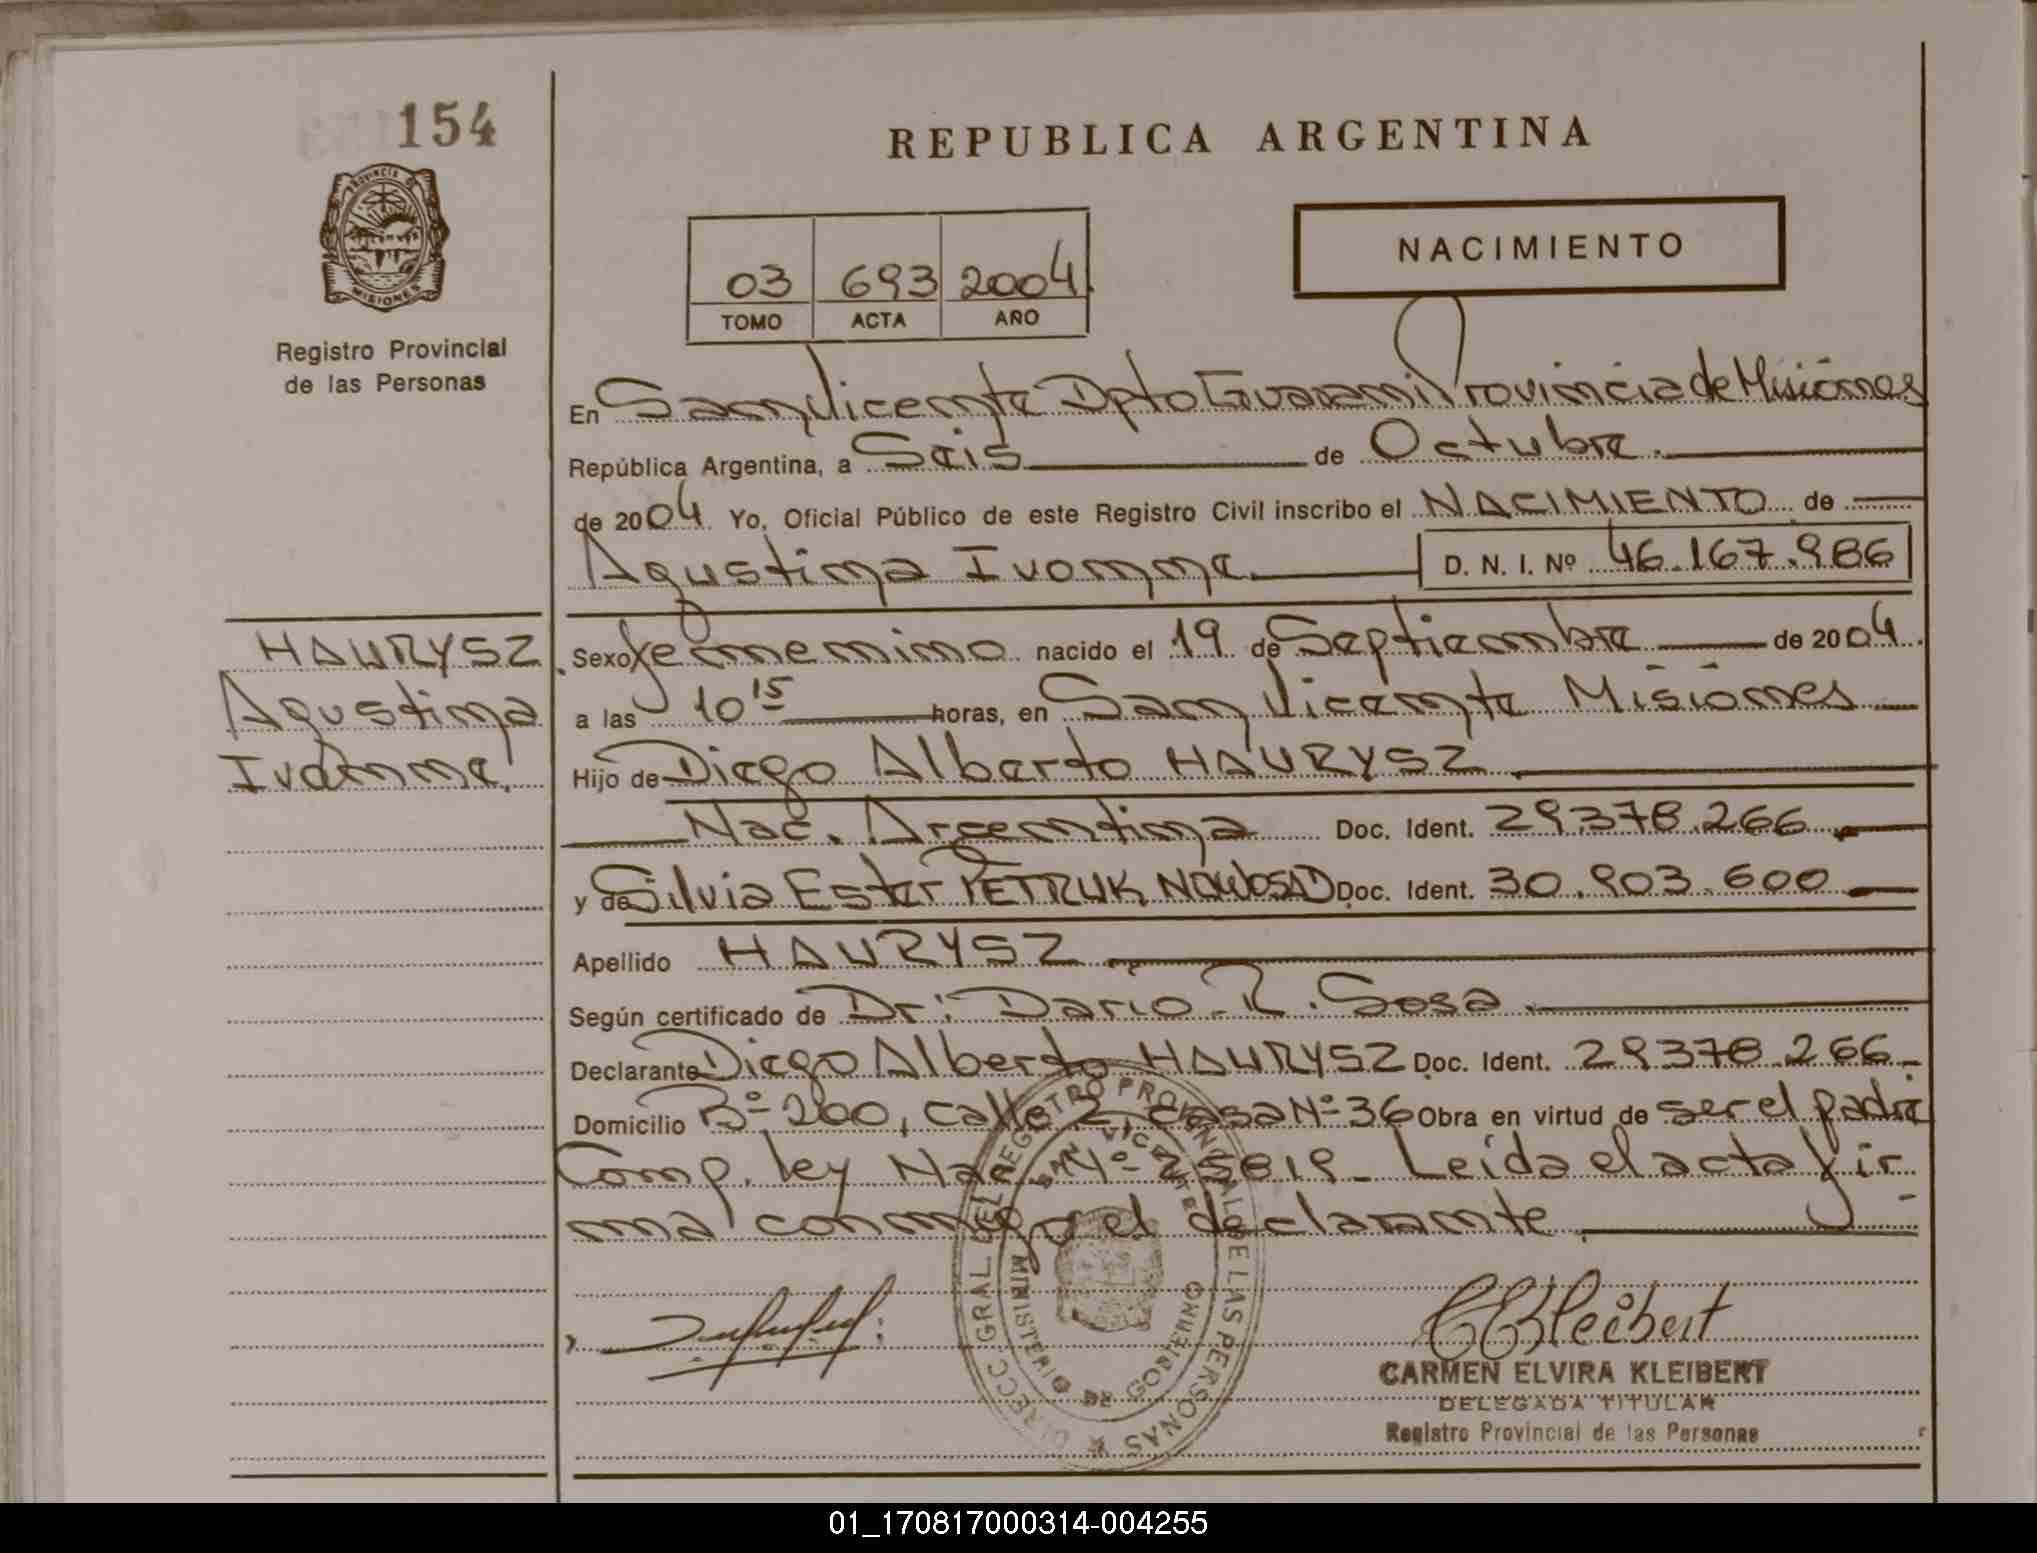 154
PROVINCIA DE
MISIONES
Registro Provincial
de las Personas
REPUBLICA ARGENTINA
NACIMIENTO
03 693 2004
TOMO ACTA AÑO
En San Vicente Dpto Guarani Provincia de Misiones
República Argentina, a Seis de Octubre
de 2004 Yo, Oficial Público de este Registro Civil inscribo el NACIMIENTO de
Agustina Ivonne D. N. I. Nº 46.167.986
HAURYSZ
Agustina
Ivonne
Sexo femenino nacido el 19 de Septiembre de 2004
a las 10 15 horas, en San Vicente Misiones
Hijo de Diego Alberto HAURYSZ
Nac. Argentina Doc. Ident. 29.378.266
y de Silvia Ester PETRUK NOWOSAD Doc. Ident. 30.903.600
Apellido HAURYSZ
Según certificado de Dr: Dario R. Sosa
Declarante Diego Alberto HAURYSZ Doc. Ident. 29.378.266
Domicilio Bº 200, calle 2, casa Nº 36 Obra en virtud de ser el padre
Comp. ley Nac. Nº 25819 - Leída el acta fir
ma conmigo el declarante
DIRECC. GRAL. DEL REGISTRO PROVINCIAL DE LAS PERSONAS
SAN VICENTE
MINISTERIO DE GOBIERNO
CEKleibert
CARMEN ELVIRA KLEIBERT
DELEGADA TITULAR
Registro Provincial de las Personas
01_170817000314-004255